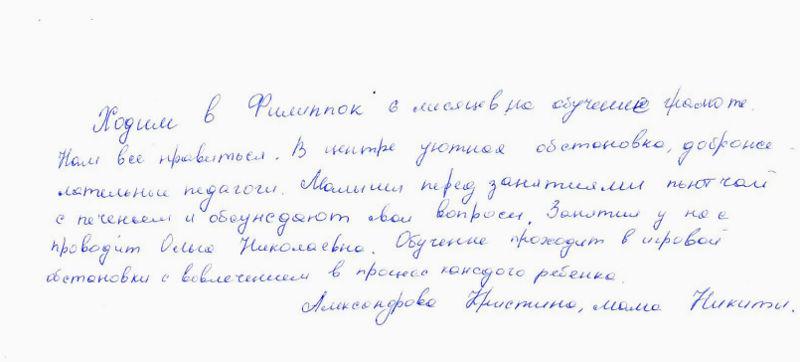 Ходим в Филиппок 6 месяцев на обучение грамоте.
Нам все нравиться. В центре уютная обстановка, доброже-
лательные педагоги. Малыши перед занятиями пьют чай
с печеньем и обсуждают свои вопросы. Занятия у нас
проводит Ольга Николаевна. Обучение проходит в игровой
обстановки с вовлечением в процес каждого ребенка.
Александрова Кристина, мама Никиты.